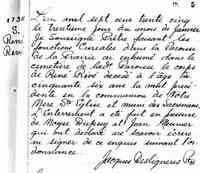 1735
S.
René
Rivé
5
L'an mil sept cens trente cinq
le treizieme jour du mois de janvier
Je soussigné Pretre faisant les
fonctions Curiales dans la Paroisse
de la Prairie ai enhumé dans le
cimetière de lad. Paroisse le corps
de René Rivé decedé à l'age de
cinquante six ans la nuit
dente en la communion de Notre
Mere Ste Eglise et muni des Sacremens.
L'Enterrement a été fait en presence
de Moyse Dupuy et Jean
qui ont declaré ne savoir ecrire
ni signer de ce enquis suivant
l'ordonnance.
Jacques Desligneris